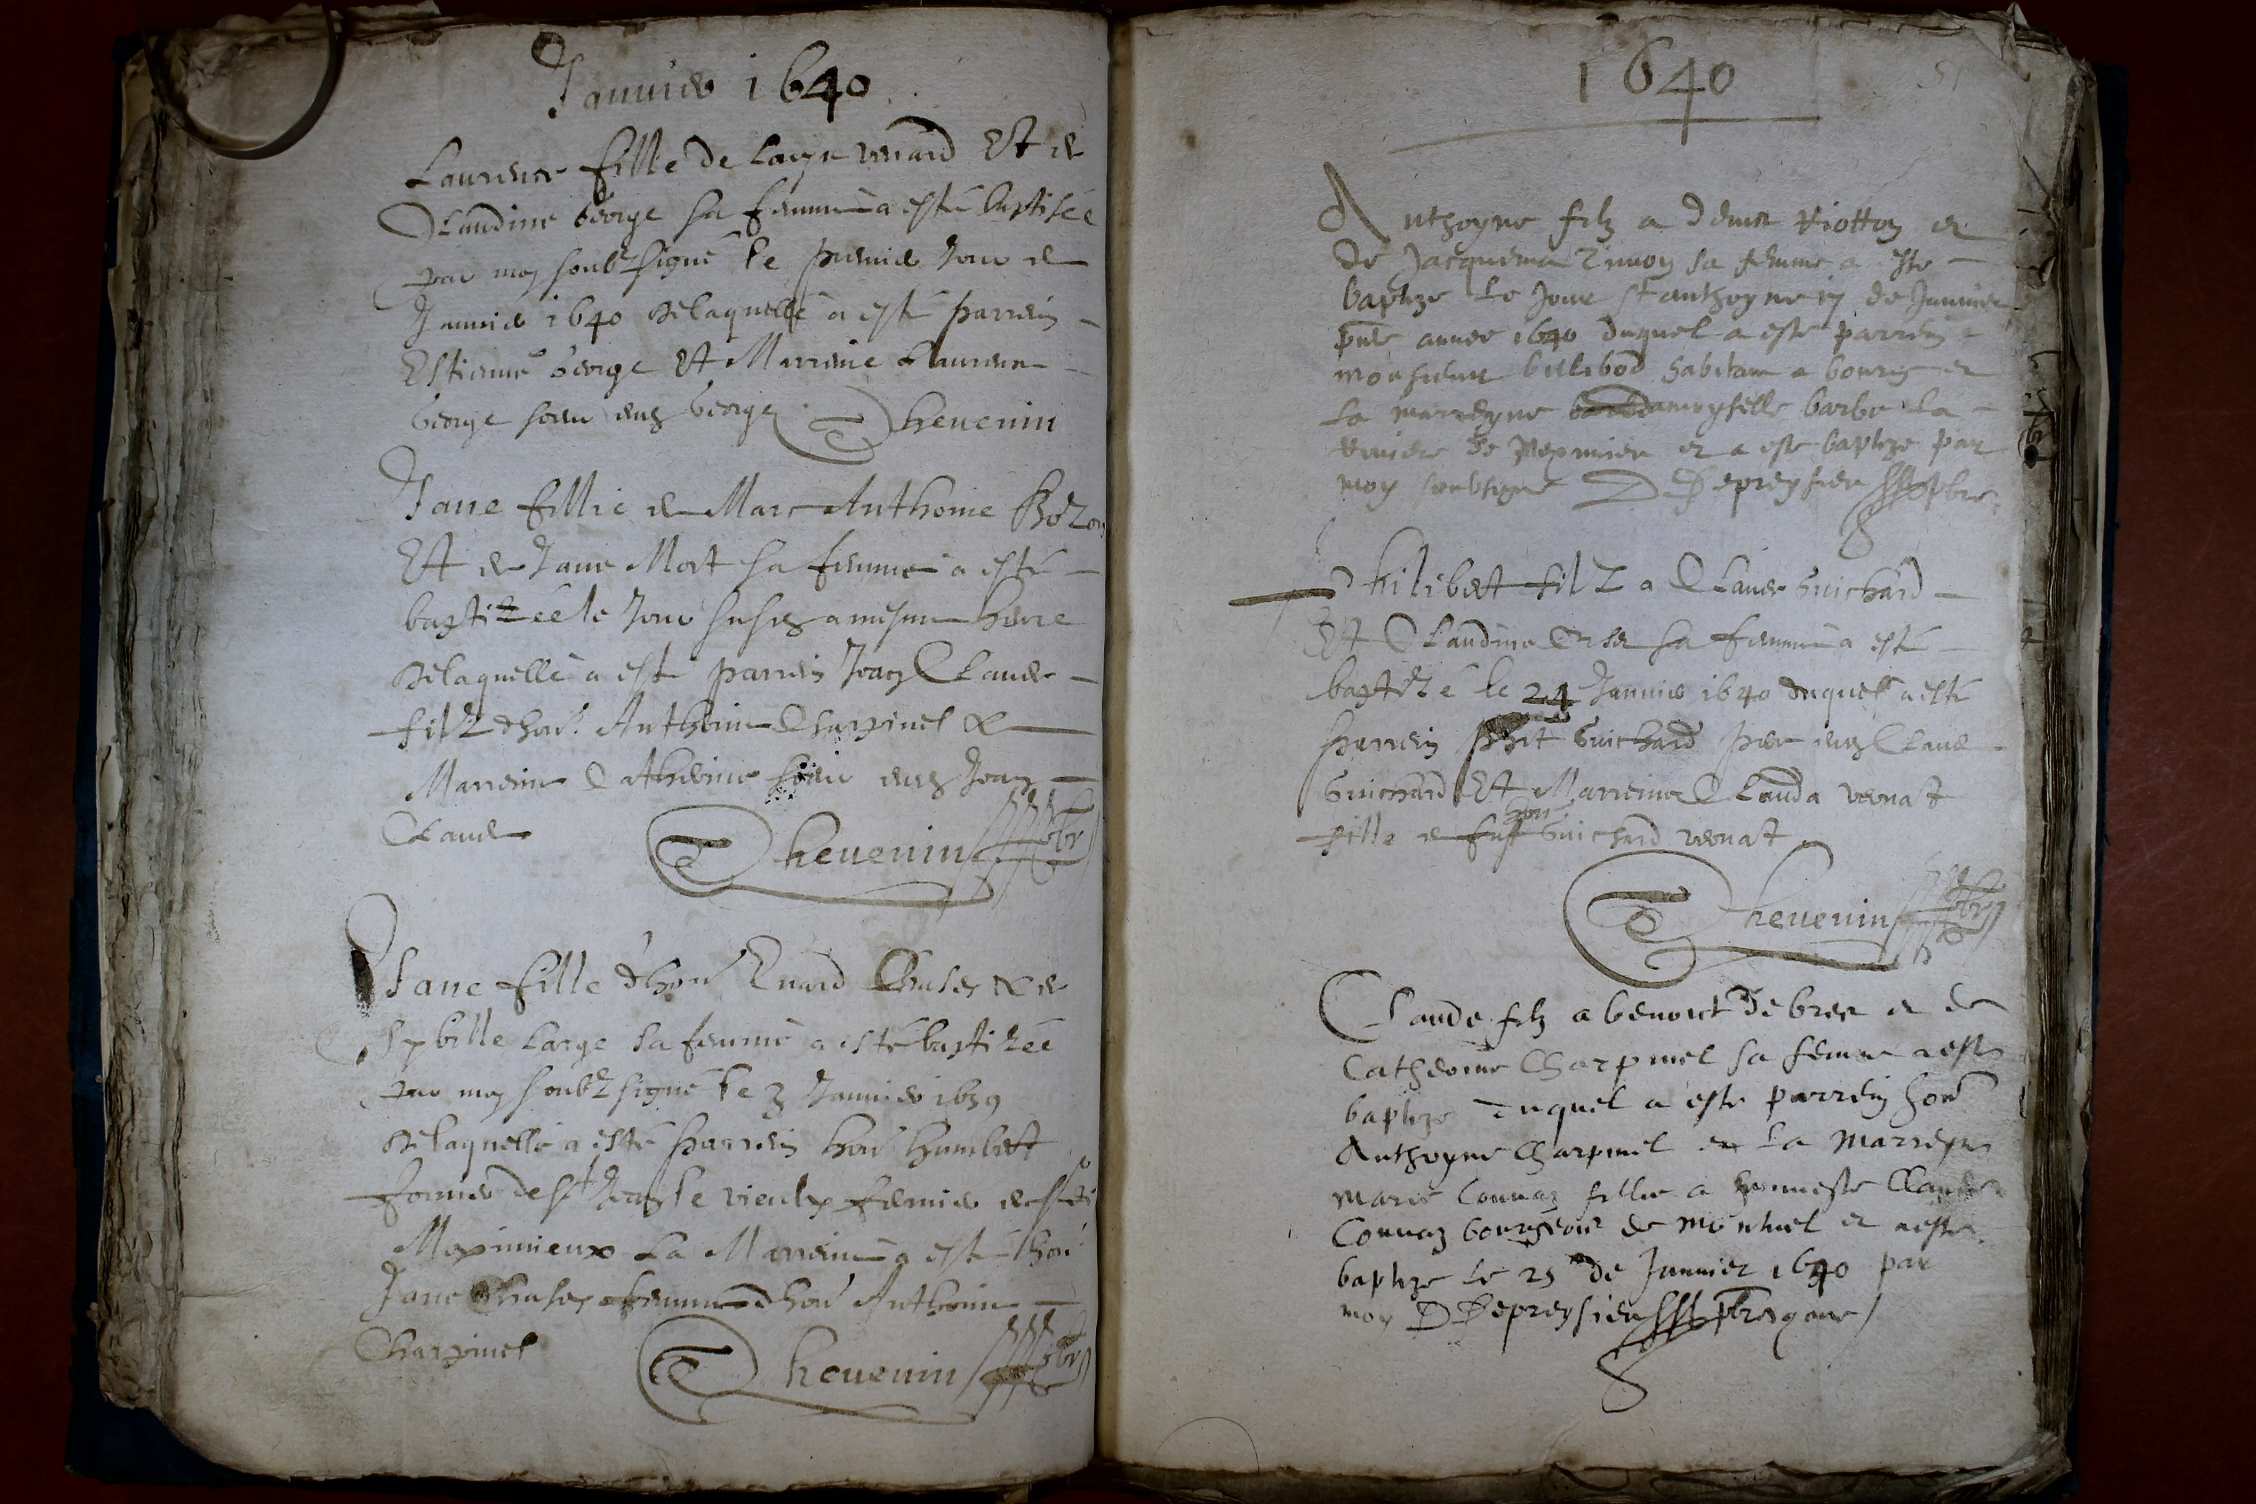 Januier 1640
Laurence fille de Loys renard Et de
Claudine George sa femme a esté baptisée
par moy soubzsigné le premier Jour de
Januier 1640 de laquelle a esté parrein
Estienne George Et Marreine Laurence
George soeur dud George Theuenin
Jane fillie de Marc Anthoine
Et de Jane Mort sa femme a esté
baptizée le Jour susd a mesme heure
de laquelle a esté parrein Jean Claude
filz d'hon. Anthoine Charpinel &
Marreine Catherine soeur dud Jean
Claude Theuenin pbr
Jane fille d'hon Chuse & de
Sybille Large sa femme a esté baptizée
par moy soubzsigné le 3 Januier 1639
de laquelle a esté parrein hon humbert
fornier de st Jean le vieulx fermier de
Meximieux La Marreine a esté hon
Jane femme d'hon Anthoine
Charpinel Theuenin pbr
1640
51
Anthoyne filz a Riotton et
de Jacquema sa femme a este
baptize le Jour st anthoyne 17 de Januier
pnte annee 1640 duquel a este parrein
monsieur billibod habitant a bourg et
la marreyne damoyselle barbe la
de Meximieu et a este baptize par
moy soubsigne D Depreysieu pbre
Philibert filz a Claude Guichard
Et Claudine sa femme a esté
baptizé le 24 Januier 1640 duquel a esté
parrein phit Guichard pere dud Claude
Guichard Et Marreine Clauda vernat
fille de fust hon Guichard vernat
Theuenin pbr
Claude filz a benoict de bree et de
Catherine Charpinel sa femme a este
baptize duquel a este parrein hon
Anthoyne Charpinel et la Marreyne
Marie Connaz fillie a honneste Claude
Connaz bourgeois de Montluel et a este
baptize le 25 de Januier 1640 par
moy D Depreysieu pbr